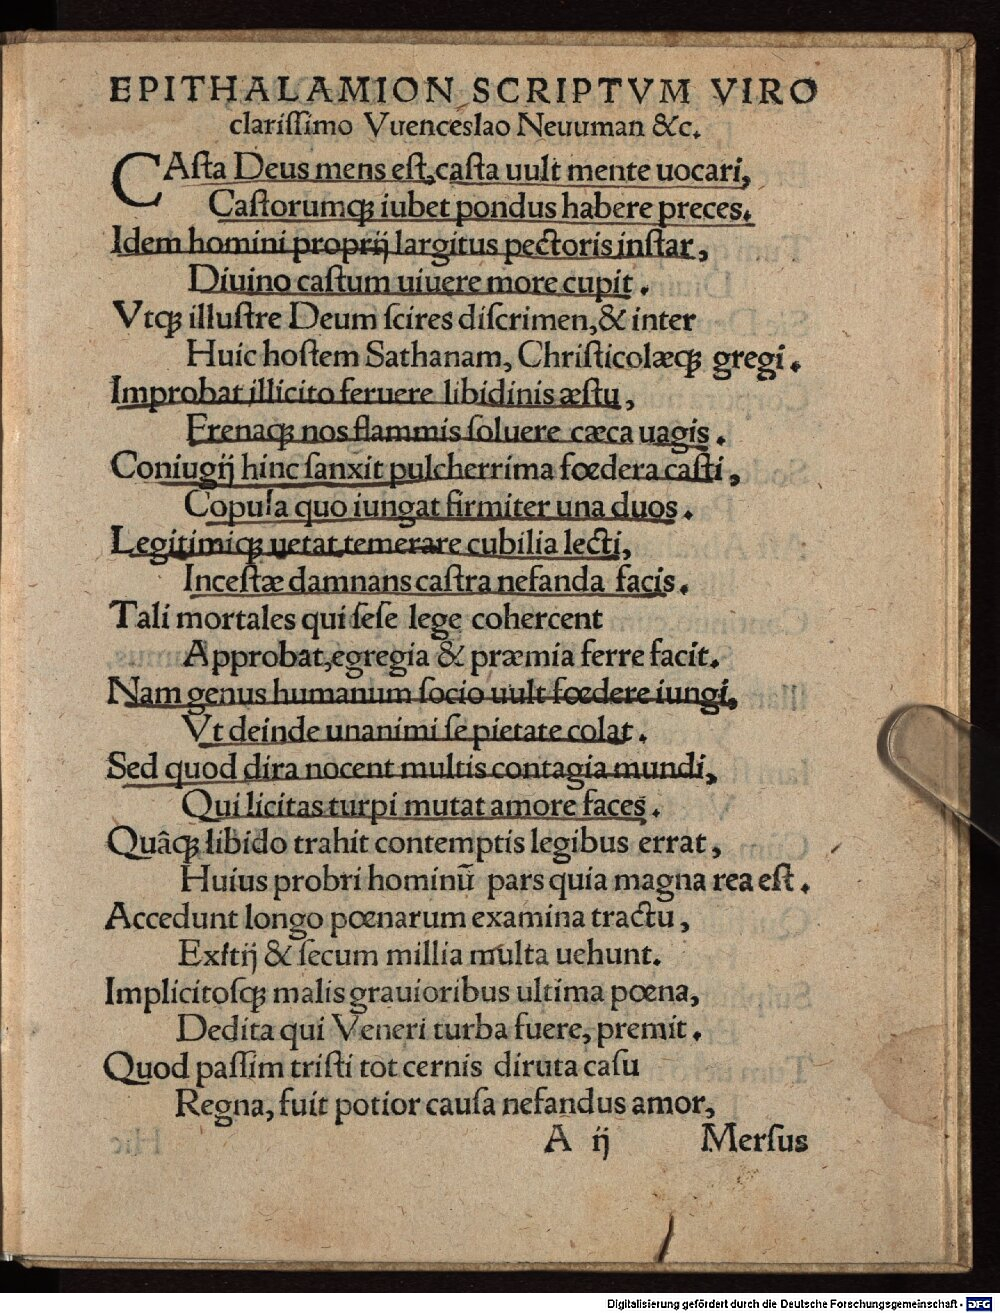 EPITHALAMION SCRIPTVM VIRO
clariſſimo Vuenceslao Neuuman &c.
CAſta Deus mens eſt, caſta uult mente uocari,
Caſtorumqꝫ iubet pondus habere preces.
Idem homini proprij largitus pectoris inſtar,
Diuino caſtum uiuere more cupit.
Vtqꝫ illuſtre Deum ſcires diſcrimen, & inter
Huic hoſtem Sathanam, Chriſticolæqꝫ gregi.
Improbat illicito feruere libidinis æſtu,
Frenaqꝫ nos flammis ſoluere cæca uagis.
Coniugij hinc ſanxit pulcherrima fœdera caſti,
Copula quo iungat firmiter una duos.
Legitimiqꝫ uetat temerare cubilia lecti,
Inceſtæ damnans caſtra nefanda facis.
Tali mortales qui ſeſe lege cohercent
Approbat, egregia & præmia ferre facit.
Nam genus humanum ſocio uult fœdere iungi,
Vt deinde unanimi ſe pietate colat.
Sed quod dira nocent multis contagia mundi,
Qui licitas turpi mutat amore faces.
Quâqꝫ libido trahit contemptis legibus errat,
Huius probri hominū pars quia magna rea eſt.
Accedunt longo pœnarum examina tractu,
Exitij & ſecum millia multa uehunt.
Implicitoſqꝫ malis grauioribus ultima pœna,
Dedita qui Veneri turba fuere, premit.
Quod paſſim triſti tot cernis diruta caſu
Regna, fuit potior cauſa nefandus amor,
A ij Merſus
Digitalisierung gefördert durch die Deutsche Forschungsgemeinschaft - DFG